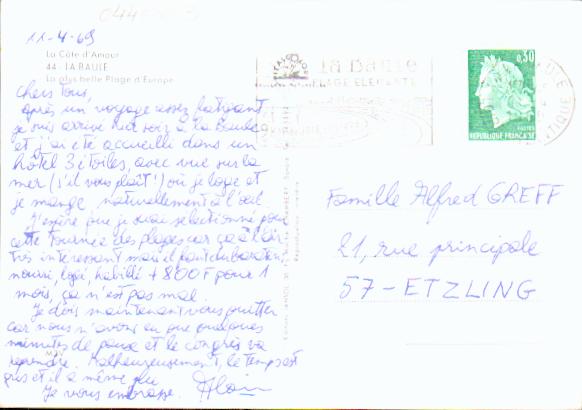 11-4-69
La Côte d'Amour
44 - LA BAULE
La plus belle Plage d'Europe
Chers Tous,
Après un voyage assez fatigant
je suis arrivé hier soir à la Baule
et j'ai été accueilli dans un
hôtel 3 étoiles, avec vue sur la
mer (s'il vous plaît !) où je loge et
je mange naturellement à l'œil.
J'espère que je serai selectionné pour
cette tournée des plages car ça a l'air
très interessant mais il faut du baratin
nourri, logé, habillé + 800F pour 1
mois, ça n'est pas mal.
Je dois maintenant vous quitter
car nous n'avons eu que quelques
minutes de pause et le congrès va
reprendre. Malheureusement, le temps est
gris et il a même plu.
Je vous embrasse. Alain
la baule
PLAGE ELEGANTE
0,30
POSTES
REPUBLIQUE FRANÇAISE
Famille Alfred GREFF
21, rue principale
57 - ETZLING